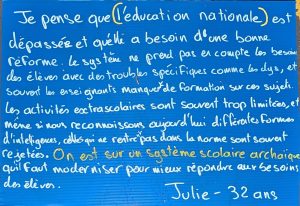 Je pense que (l'éducation nationale) est
dépassée et qu'elle a besoin d'une bonne
réforme. Le système ne prend pas en compte les besoins
des élèves avec des troubles spécifiques comme les dys, et
souvent les enseignants manquent de formation sur ces sujets.
Les activités extrascolaires sont souvent trop limitées, et
même si nous reconnaissons aujourd'hui différentes formes
d'intelligences, celles qui ne rentre pas dans la norme sont souvent
rejetées. On est sur un système scolaire archaïque
qu'il faut moderniser pour mieux répondre aux besoins
des élèves.
Julie - 32 ans